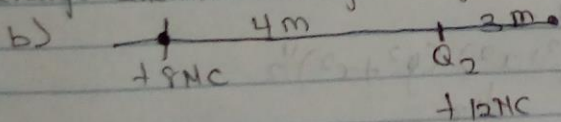 b) 4m 3m
+8MC Q2
+12MC